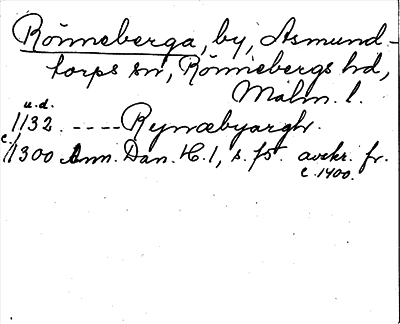 Rönneberga, by, Asmund-
torps sn, Rönnebergs hd,
Malm. l.
u.d.
1132 ---- Rynæbyargh.
c.
1300 Ann. Dan. H. 1, s. avskr. fr.
c. 1400.